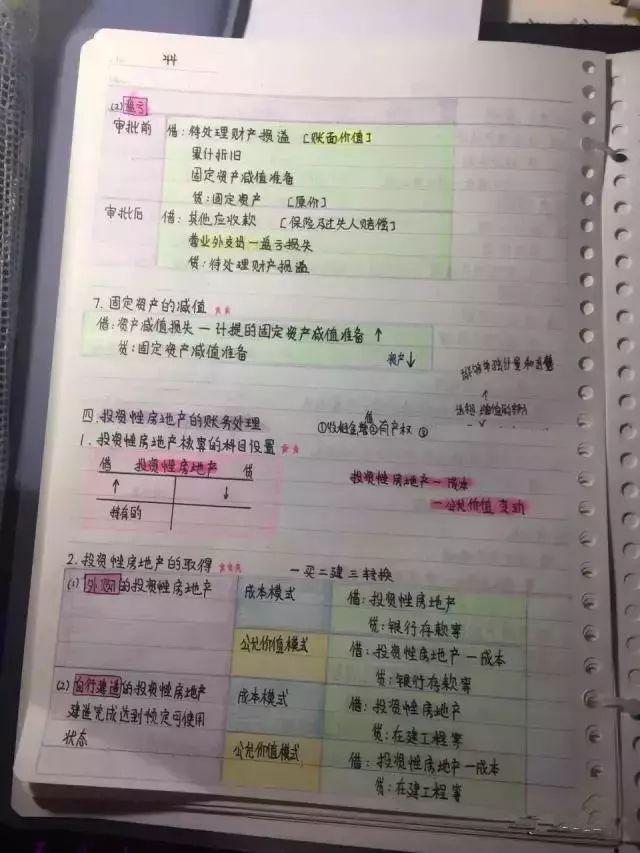 (2)盘亏
审批前 借:待处理财产损溢 [账面价值]
累计折旧
固定资产减值准备
贷:固定资产 [原价]
审批后 借:其他应收款 [保险及过失人赔偿]
营业外支出—盘亏损失
贷:待处理财产损溢
7.固定资产的减值 ★★
借:资产减值损失—计提的固定资产减值准备 ↑
贷:固定资产减值准备 资产↓
能够单独计量和出售
↑
四.投资性房地产的账务处理
①收租金 增值 ②有产权 ③
1.投资性房地产核算的科目设置 ★★
借 投资性房地产 贷
↑ ↓
持有的
投资性房地产—成本
—公允价值变动
2.投资性房地产的取得 ★★★ 一买二建三转换
(1)外购的投资性房地产 成本模式 借:投资性房地产
贷:银行存款等
公允价值模式 借:投资性房地产—成本
贷:银行存款等
(2)自行建造的投资性房地产 成本模式 借:投资性房地产
建造完成达到预定可使用 贷:在建工程等
状态 公允价值模式 借:投资性房地产—成本
贷:在建工程等